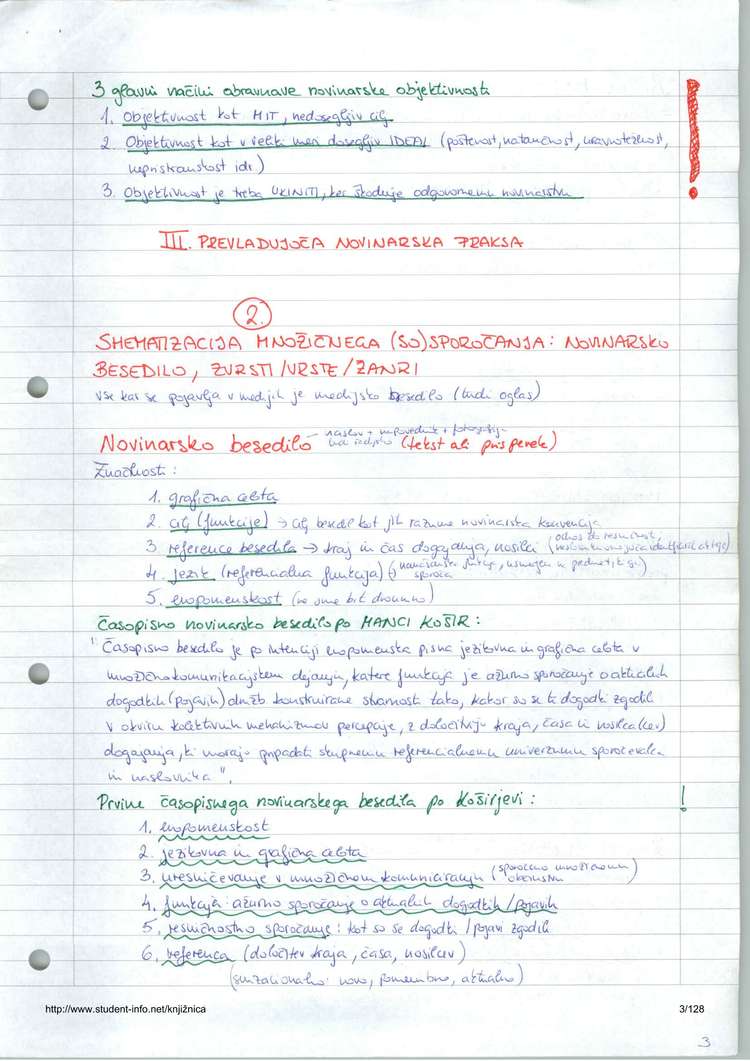 3 glavni načini obravnave novinarske objektivnosti
1. Objektivnost kot MIT, nedosegljiv cilj
2. Objektivnost kot v veliki meri dosegljiv IDEAL (poštenost, natančnost, uravnoteženost,
nepristranskost idr.)
3. Objektivnost je treba UKINITI, ker škoduje odgovornemu novinarstvu
!
III. PREVLADUJOČA NOVINARSKA PRAKSA
2.
SHEMATIZACIJA MNOŽIČNEGA (SO)SPOROČANJA: NOVINARSKO
BESEDILO, ZVRSTI/VRSTE/ŽANRI
vse kar se pojavlja v medijih je medijsko besedilo (tudi oglas)
naslov + napovednik + fotografija
Novinarsko besedilo (tekst ali prispevek)
Značilnosti:
1. grafična celota
2. cilj (funkcije) → cilj besedil kot jih razume novinarska konvencija
3. reference besedila → kraj in čas dogajanja, nosilci (odnos do resničnosti,
4. jezik (referencialna funkcija)
sporoča
5. enopomenskost (ne sme bit dvoumno)
Časopisno novinarsko besedilo po MANCI KOŠIR:
"Časopisno besedilo je po intenciji enopomenska pisna jezikovna in grafična celota v
množičnokomunikacijskem dejanju, katere funkcija je ažurno sporočanje o aktualnih
dogodkih (pojavih) družb. konstruirane stvarnosti tako, kakor so se ti dogodki zgodili
v okviru kolektivnih mehanizmov percepcije, z določitvijo kraja, časa in nosilca(cev)
dogajanja, ki morajo pripadati skupnemu referencialnemu univerzumu sporočevalca
in naslovnika".
Prvine časopisnega novinarskega besedila po Koširjevi: !
1. enopomenskost
2. jezikovna in grafična celota
3. uresničevanje v množičnem komuniciranju (sporočeno množičnemu
občinstvu)
4. funkcija: ažurno sporočanje o aktualnih dogodkih/pojavih
5. resničnostno sporočanje: kot so se dogodki/pojavi zgodili
6. referenca (določitev kraja, časa, nosilcev)
(senzacionalno: novo, pomembno, aktualno)
http://www.student-info.net/knjižnica 3/128
3